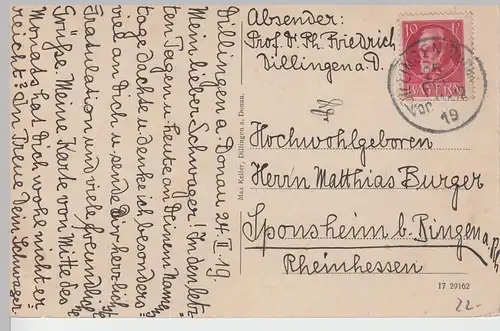 Dillingen a. Donau 24. II. 19.
Mein lieber Schwager! In den letz-
ten Tagen u. heute an Deinem Namens-
tage dachte u. denke ich besonders
viel an Dich u. sende Dir herzlichste
Gratulation und viele freundliche
Grüße. Meine Karte von Mitte des
Monats hat Dich wohl nicht er-
reicht? In Treue Dein Schwager.
Absender:
Prof. D. Ph. Friedrich
Dillingen a. D.
Max Keller, Dillingen a. Donau.
10 Pf
BAYERN
19
Hochwohlgeboren
Herrn Matthias Burger
Sponsheim b. Bingen a. Rh.
Rheinhessen
17 29162
22-